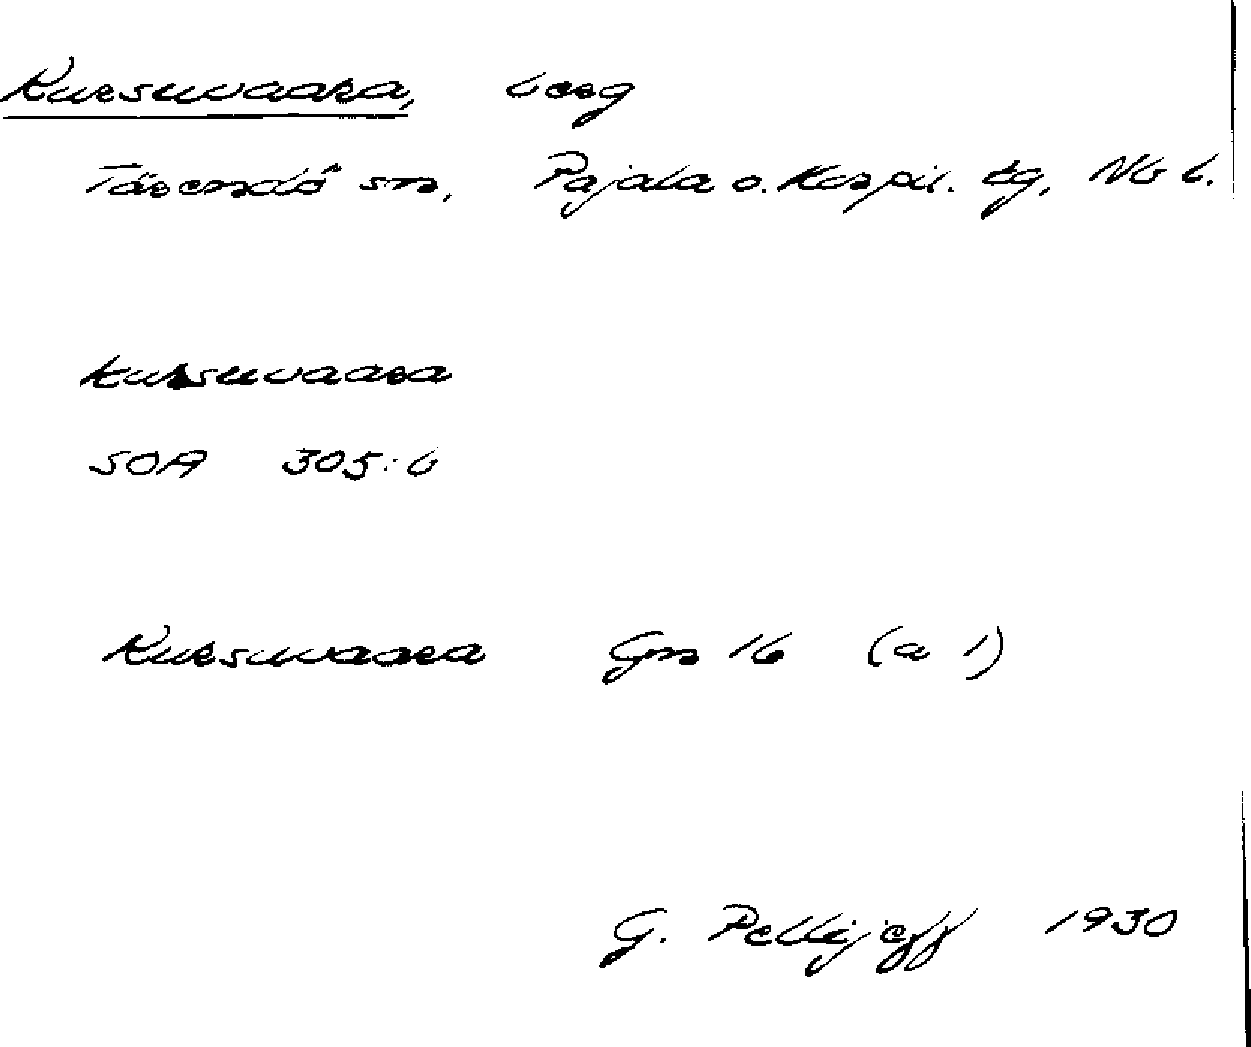 Kursuvaara, berg
Tärendö sn, Pajala o. Korpil. tg, Nb l.
kursuvaara
SOA 305:6
Kursuvaara Gm 16 (a 1)
G. Pellijeff 1930